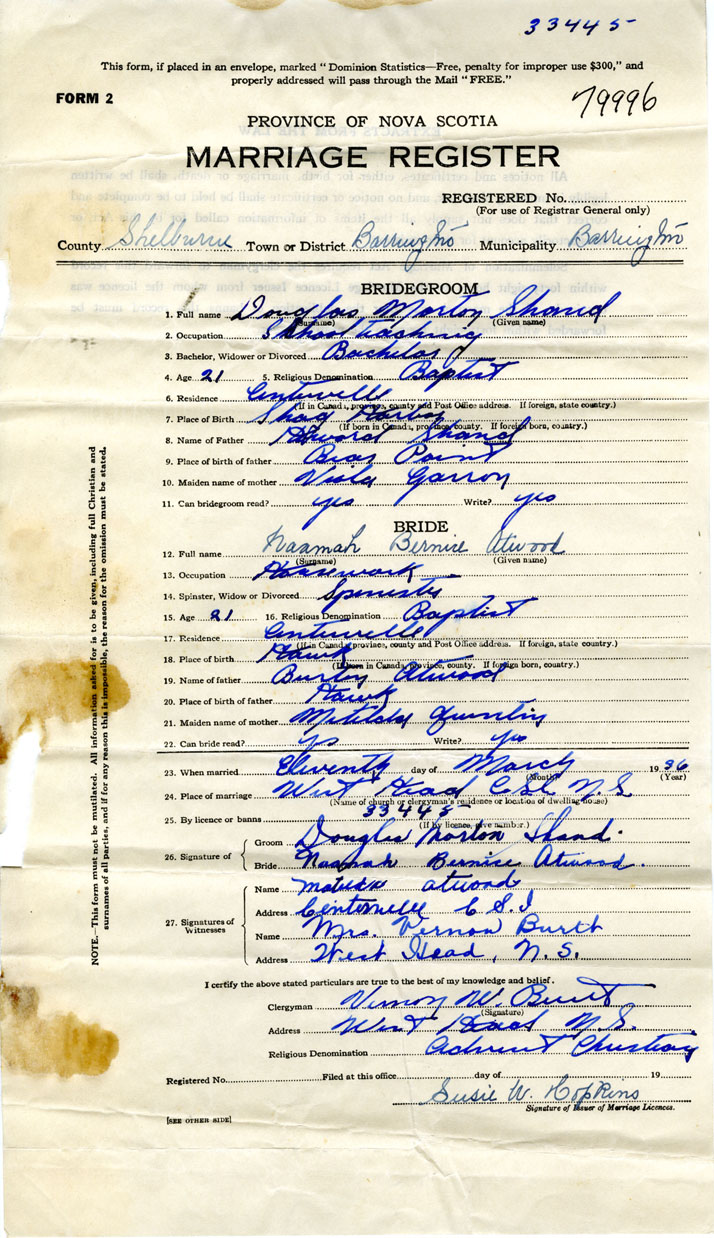 33445
This form, if placed in an envelope, marked "Dominion Statistics—Free, penalty for improper use $300," and
properly addressed will pass through the Mail "FREE."
FORM 2
79996
PROVINCE OF NOVA SCOTIA
MARRIAGE REGISTER
REGISTERED No.
(For use of Registrar General only)
County Shelburne Town or District Barrington Municipality Barrington
BRIDEGROOM
1. Full name Douglas Morton Shand
(Surname) (Given name)
2. Occupation School teaching
3. Bachelor, Widower or Divorced Bachelor
4. Age 21 5. Religious Denomination Baptist
6. Residence Centreville
(If in Canada, province, county and Post Office address. If foreign, state country.)
7. Place of Birth Shag Harbor
(If born in Canada, province, county. If foreign born, country.)
8. Name of Father Howard Shand
9. Place of birth of father Bear Point
10. Maiden name of mother Viola Garron
11. Can bridegroom read? yes Write? yes
BRIDE
12. Full name Naamah Bernice Atwood
(Surname) (Given name)
13. Occupation Housework
14. Spinster, Widow or Divorced Spinster
15. Age 21 16. Religious Denomination Baptist
17. Residence Centreville
(If in Canada, province, county and Post Office address. If foreign, state country.)
18. Place of birth Hawk
(If born in Canada, province, county. If foreign born, country.)
19. Name of father Atwood
20. Place of birth of father Hawk
21. Maiden name of mother Matilda
22. Can bride read? yes Write? yes
23. When married Eleventh day of March 1936
(Month) (Year)
24. Place of marriage West Head C.S.I. N.S.
(Name of church or clergyman's residence or location of dwelling house)
25. By licence or banns 33445
(If by licence, give number.)
26. Signature of
Groom Douglas Morton Shand.
Bride Naamah Bernice Atwood.
27. Signatures of Witnesses
Name Atwood
Address Centreville C S I
Name Mrs. Vernon Burtt
Address West Head, N.S.
I certify the above stated particulars are true to the best of my knowledge and belief.
Clergyman Vernon W. Burtt
(Signature)
Address West Head N.S.
Religious Denomination Advent Christian
Registered No. Filed at this office day of 19
Susie W. Hopkins
Signature of Issuer of Marriage Licences.
[SEE OTHER SIDE]
NOTE.—This form must not be mutilated. All information asked for is to be given, including full Christian and
surnames of all parties, and if for any reason this is impossible, the reason for the omission must be stated.